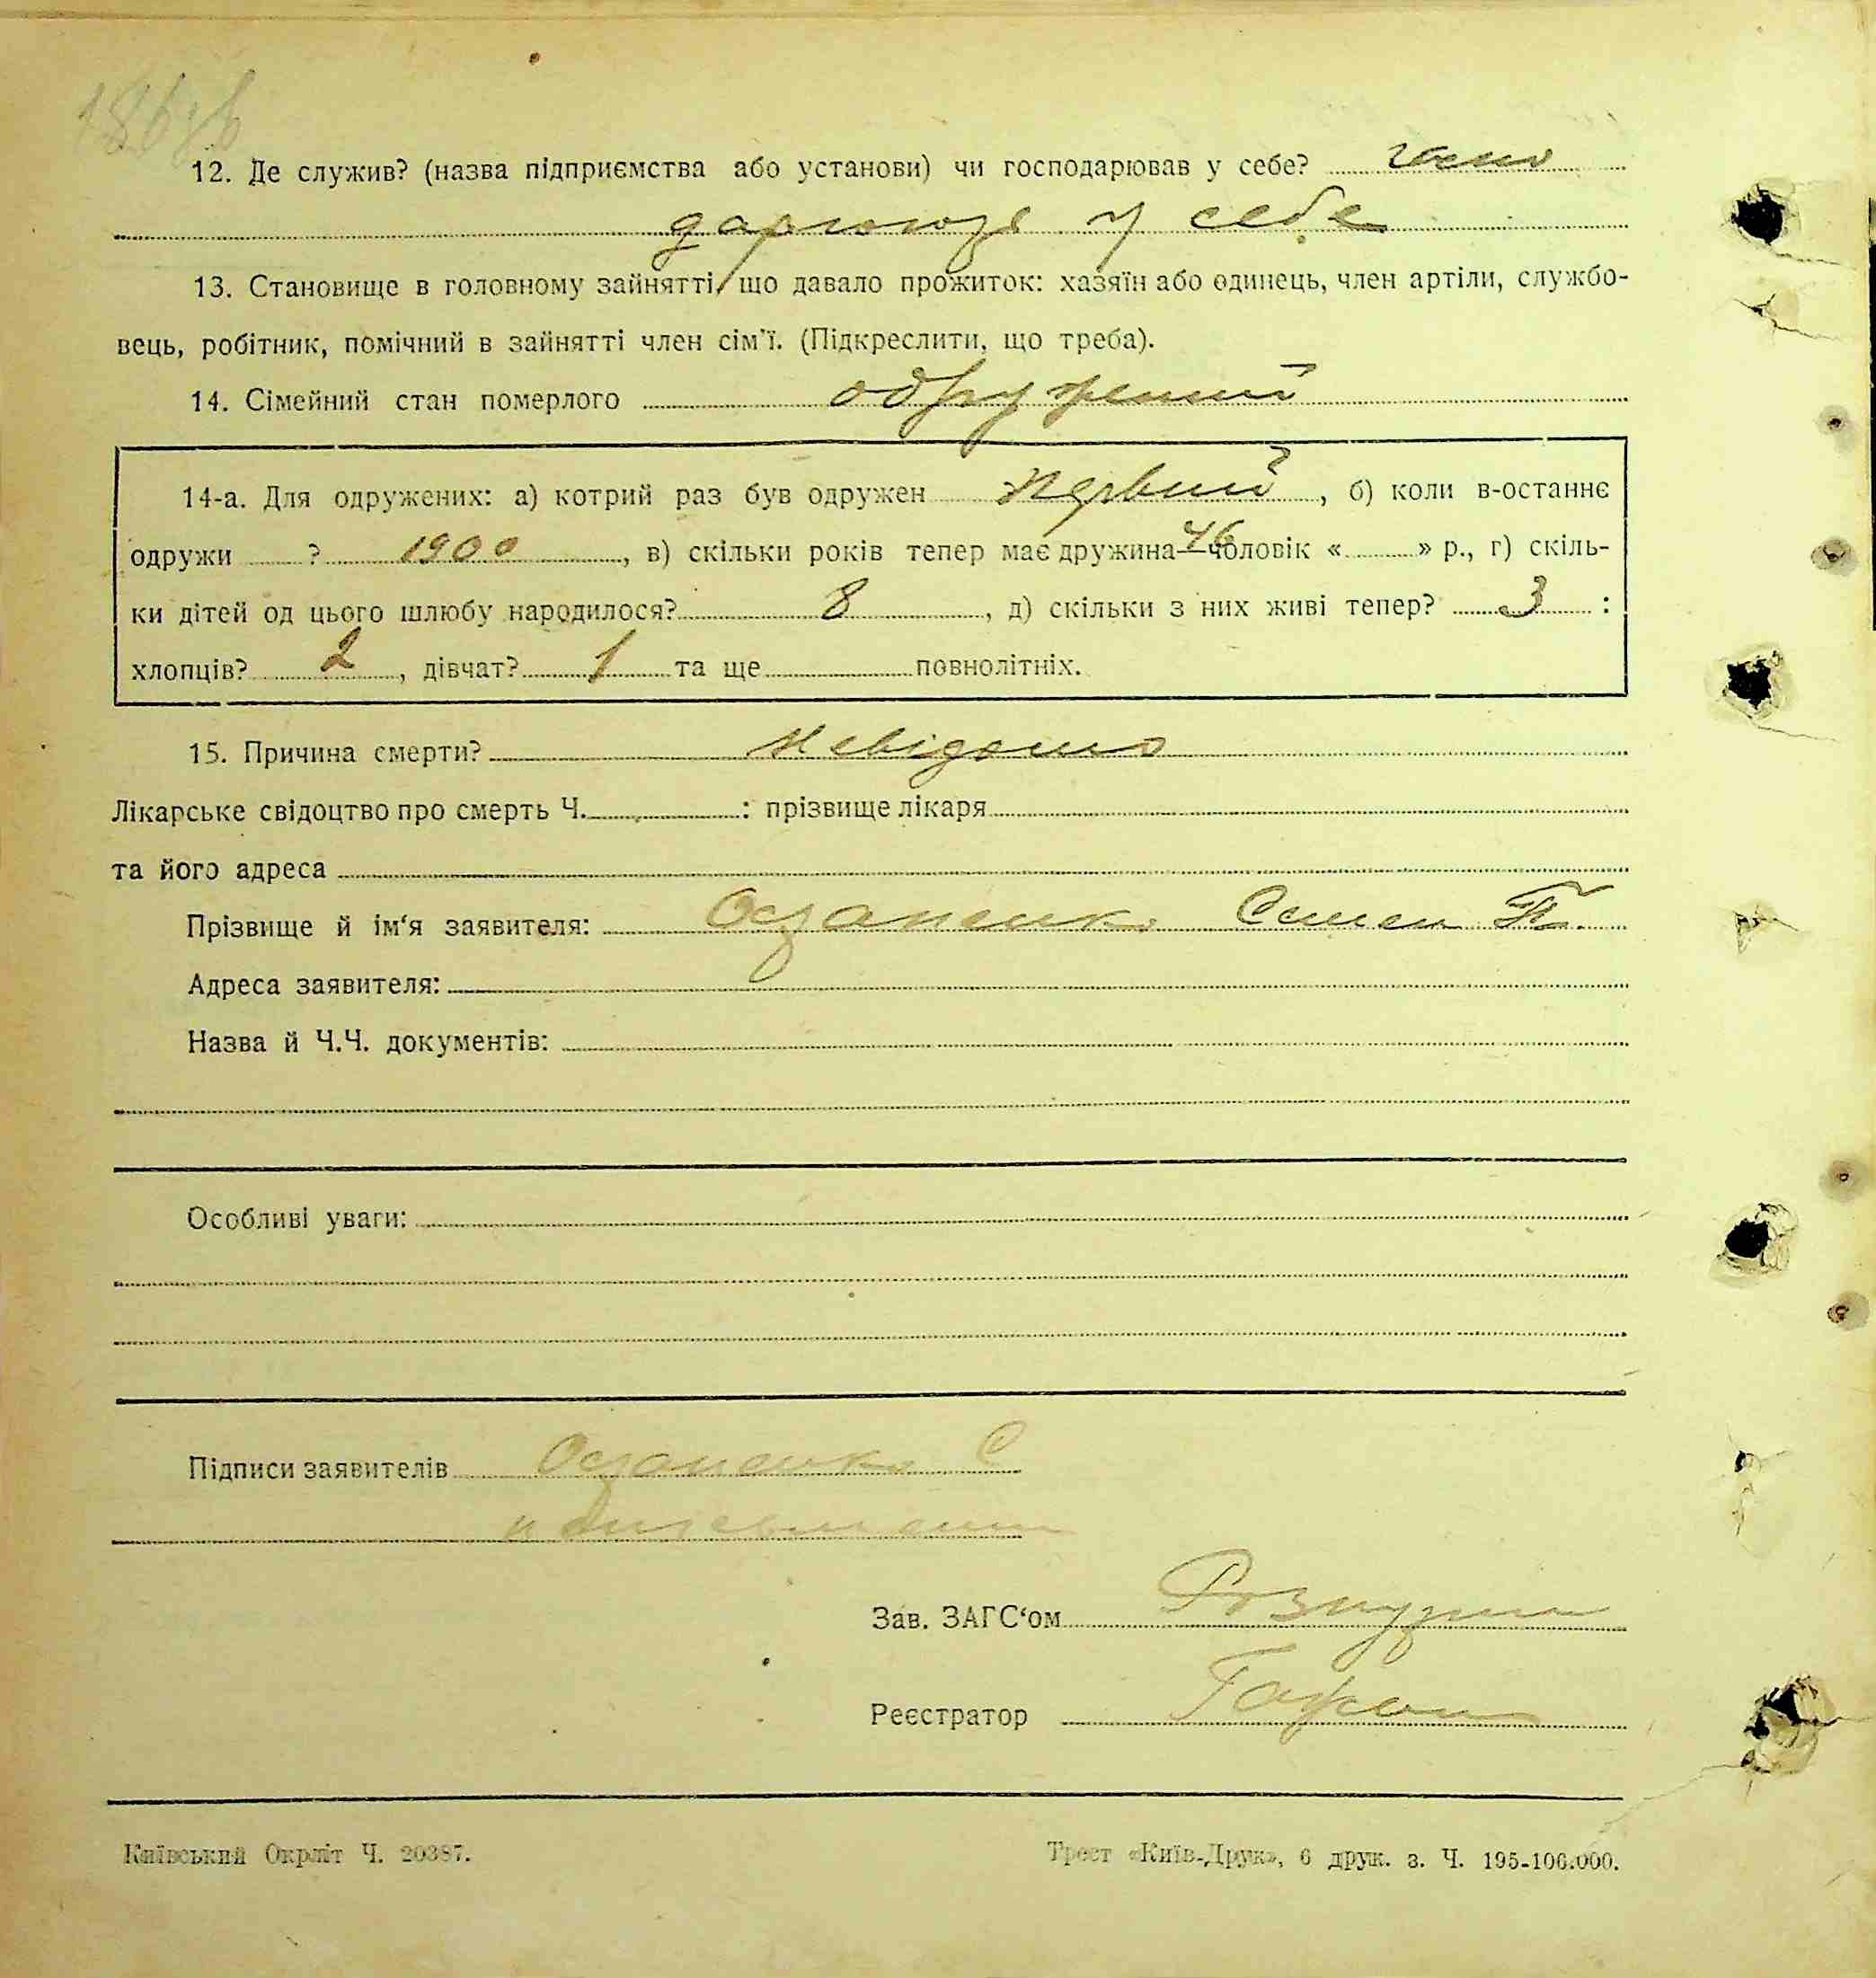 12. Де служив? (назва підприємства або установи) чи господарював у себе?
у себе
13. Становище в головному зайнятті, що давало прожиток: хазяїн або одинець, член артіли, службо-
вець, робітник, помічний в зайнятті член сім'ї. (Підкреслити, що треба).
14. Сімейний стан померлого одружений
14-а. Для одружених: а) котрий раз був одружен первий, б) коли в-останнє
одружи ? 1900, в) скільки років тепер має дружина—чоловік « 46 » р., г) скіль-
ки дітей од цього шлюбу народилося? 8, д) скільки з них живі тепер? 3 :
хлопців? 2, дівчат? 1 та ще повнолітніх.
15. Причина смерти? Невідомо
Лікарське свідоцтво про смерть Ч. : прізвище лікаря
та його адреса
Прізвище й ім'я заявителя: Остапенко Семен П.
Адреса заявителя:
Назва й Ч.Ч. документів:
Особливі уваги:
Підписи заявителів Остапенко С
Зав. ЗАГС'ом
Реєстратор
Київський Окрліт Ч. 20387.
Трест «Київ-Друк», 6 друк. з. Ч. 195-100.000.